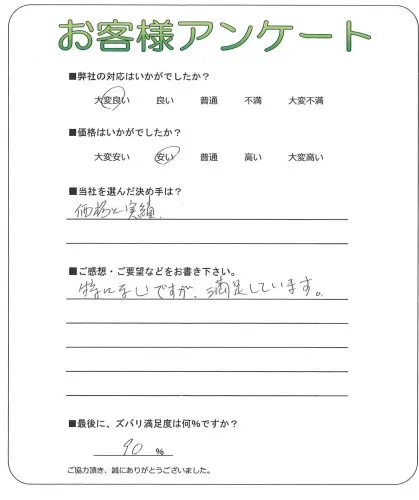 お客様アンケート
■弊社の対応はいかがでしたか？
大変良い 良い 普通 不満 大変不満
■価格はいかがでしたか？
大変安い 安い 普通 高い 大変高い
■当社を選んだ決め手は？
価格と実績.
■ご感想・ご要望などをお書き下さい。
特にないですが、満足しています。
■最後に、ズバリ満足度は何%ですか？
90 %
ご協力頂き、誠にありがとうございました。